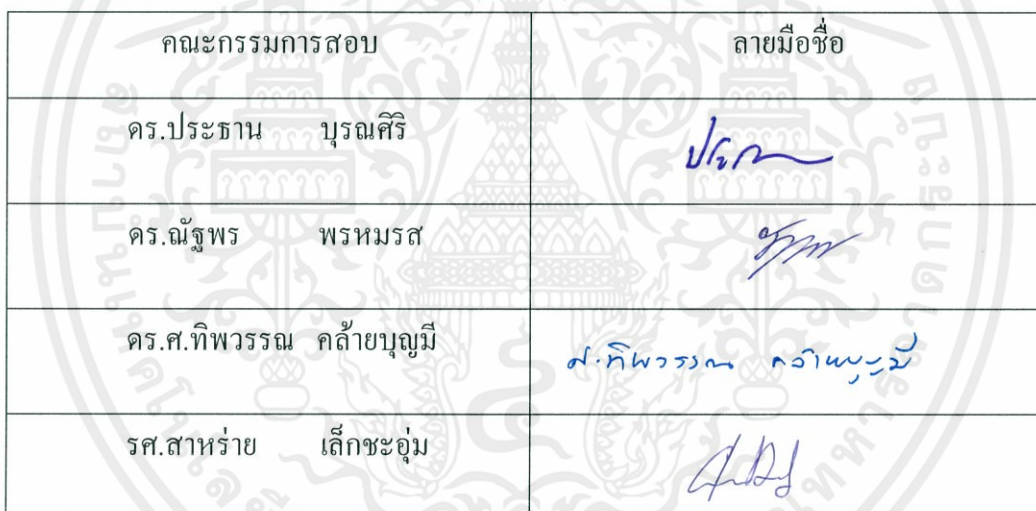 คณะกรรมการสอบ ลายมือชื่อ
ดร.ประธาน บุรณศิริ
ดร.ณัฐพร พรหมรส
ดร.ศ.ทิพวรรณ คล้ายบุญมี ศ.ทิพวรรณ คล้ายบุญมี
รศ.สาหร่าย เล็กชะอุ่ม